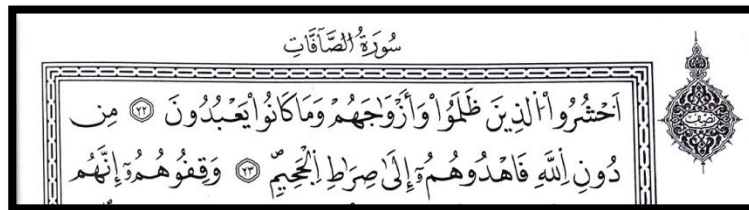 سُورَةُ الصَّآفَّاتِ
نصف
اَحْشُرُواْ اُلذِينَ ظَلَمُواْ وَأَزْوَٰجَهُمْ وَمَا كَانُواْ يَعْبُدُونَ ٢٢ مِن
دُونِ اِللَّهِ فَاهْدُوهُمُۥٓ إِلَىٰ صِرَٰطِ اِلْجَحِيمِ ٢٣ وَقِفُوهُمُۥٓ إِنَّهُم